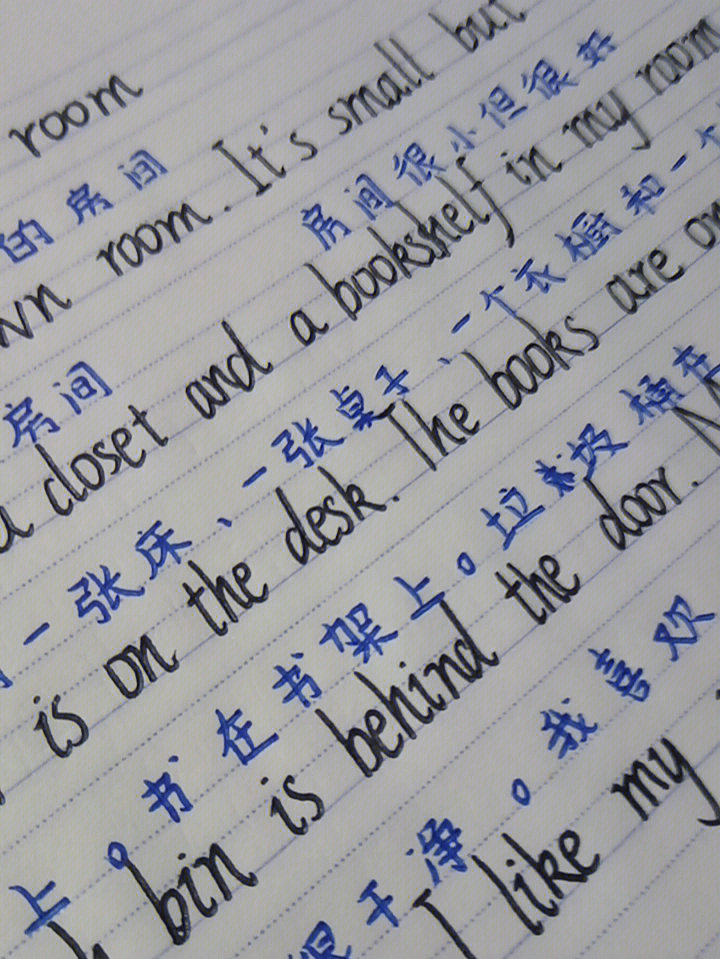 room
的房间
room. It's small but
房间很小但很好
closet and a bookshelf in my room
房间
一张床、一张桌子、一个衣橱和一个
is on the desk. The books are on
上。书在书架上。垃圾桶在
bin is behind the door.
很干净。我喜欢
I like my